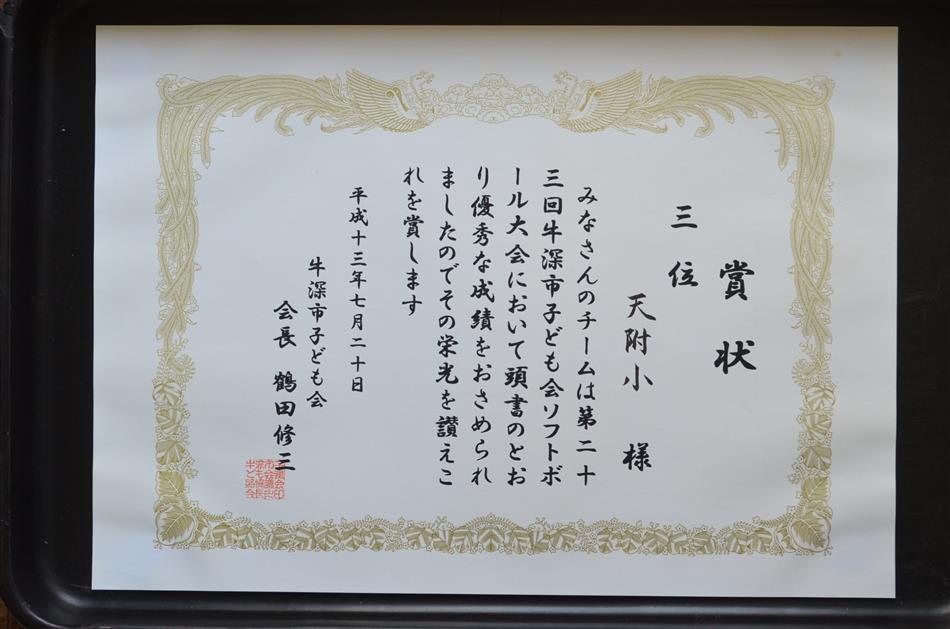 賞状
三位
天附小 様
みなさんのチームは第二十
三回牛深市子ども会ソフトボ
ール大会において頭書のとお
り優秀な成績をおさめられ
ましたのでその栄光を讃えこ
れを賞します
平成十三年七月二十日
牛深市子ども会
会長 鶴田修三